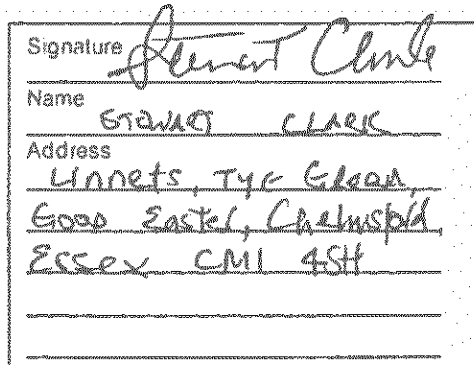 Signature Stewart Clark
Name
STEWART CLARK
Address
Linnets, Tye Green,
Good Easter, Chelmsford
Essex CM1 4SH